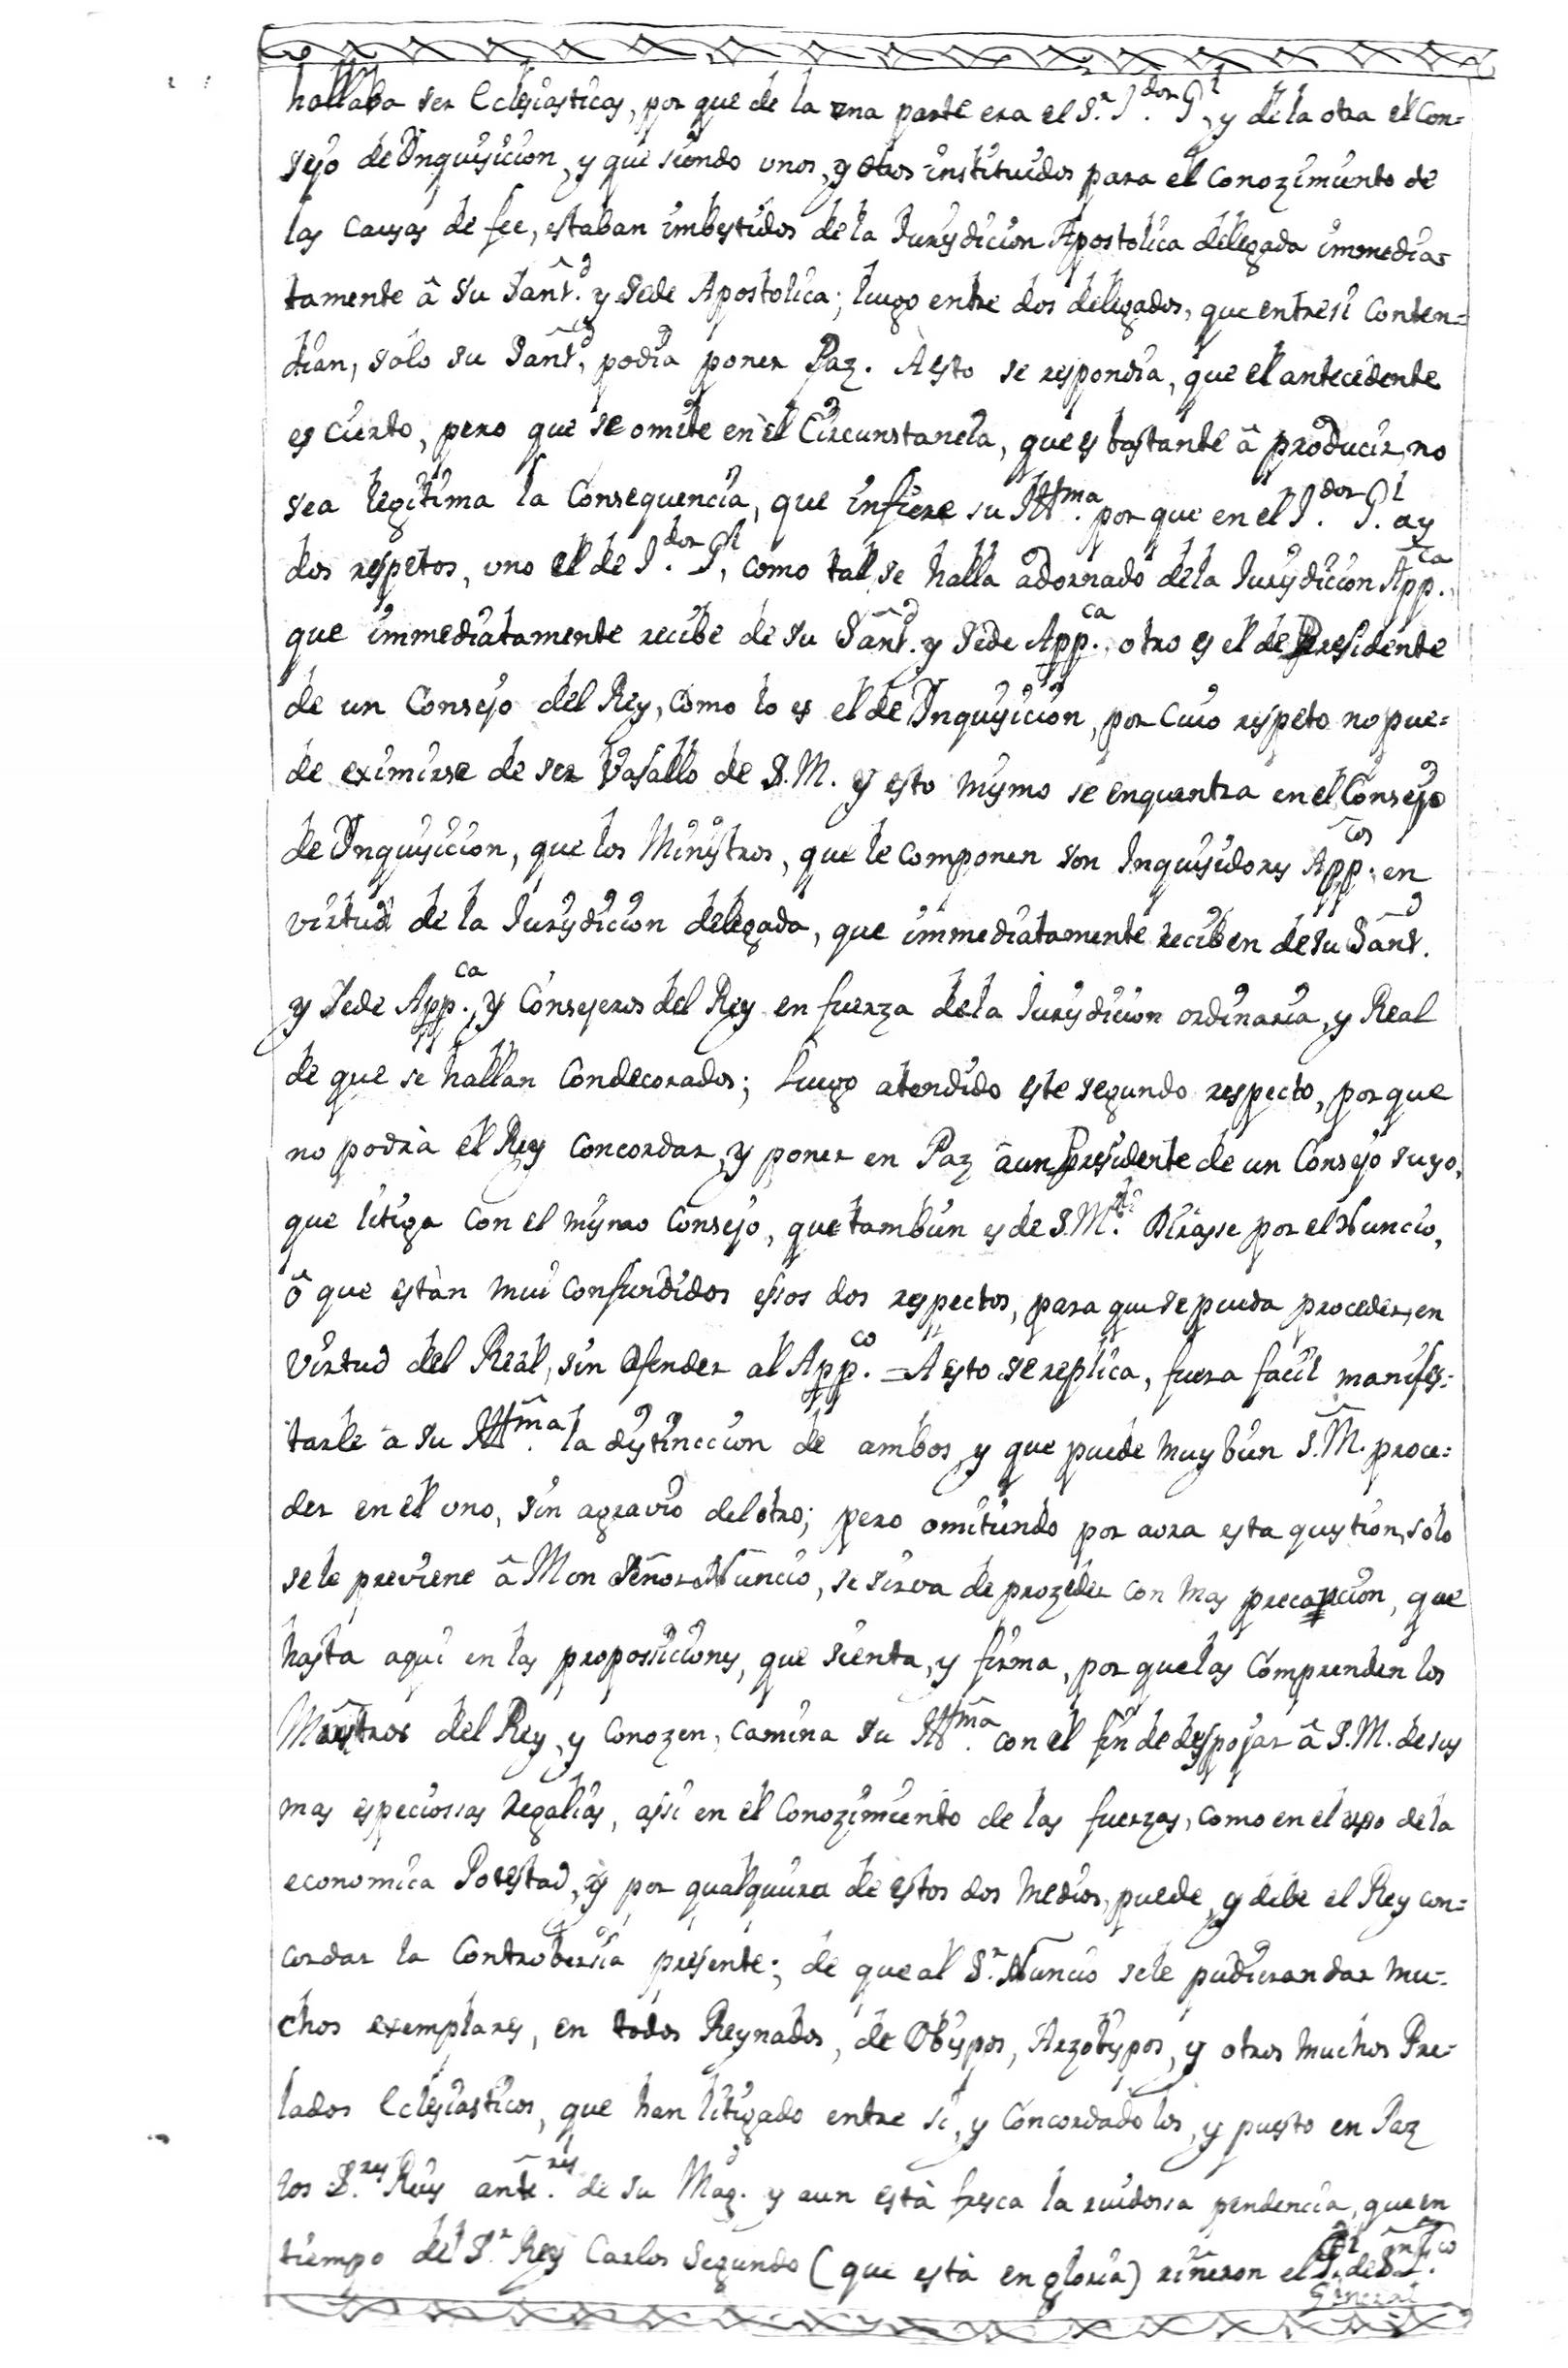 hallaba ser Eclesiasticas, por que de la una parte era el S.r I.dor G.l y de la otra el Con=
sejo de Inquisicion, y que siendo unos, y otros instituidos para el conozimiento de
las causas de fee, estaban imbestidos de la Jurisdicion Apostolica delegada immedia=
tamente â su Sant.d y Sede Apostolica; luego entre dos delegados, que entre si conten=
dian, solo su Sant.d podia poner Paz. A esto se respondia, que el antecedente
es cierto, pero que se omite en èl Circunstancia, que es bastante â producir, no
sea legitima la Consequencia, que infiere su Ill.ma por que en el I.dor G.l ay
dos respetos, uno el de I.dor G.l, como tal, se halla adornado de la Jurisdicion App.ca
que immediatamente recibe de su Sant.d y Sede App.ca, otro es el de Presidente
de un Consejo del Rey, como lo es el de Inquisicion, por cuio respeto no pue=
de eximirse de ser Vasallo de S.M. y esto mismo se enquentra en el Consejo
de Inquisicion, que los Ministros, que le componen son Inquisidores App.cos en
virtud de la Jurisdicion delegada, que immediatamente reciben de su Sant.d
y Sede App.ca, y Consejeros del Rey en fuerza de la Jurisdicion ordinaria, y Real
de que se hallan Condecorados; luego atendido este segundo respecto, por que
no podrà el Rey concordar, y poner en Paz â un Presidente de un Consejo suyo,
que litiga con el mismo Consejo, que tambien es de S.M.d Dirasse por el Nuncio,
ô que estàn mui confundidos essos dos respectos, para que se pueda proceder, en
virtud del Real, sin ofender al App.co = A esto se replica, fuera facil manifes=
tarle â su Ill.ma la distinccion de ambos, y que puede muy bien S.M. proce=
der en el uno, sin agravio del otro; pero omitiendo por aora esta question, solo
se le previene â Mon Señor Nuncio, se sirva de prozeder con mas precaucion, que
hasta aqui en las proposiciones, que sienta, y firma, por que las comprenden los
Ministros del Rey, y conozen, camina su Ill.ma con el fin de despojar â S.M. de sus
mas especiossas Regalias, assi en el Conozimiento de las fuerzas, como en el uso de la
economica Potestad, y por qualquiera de estos dos medios, puede, y debe el Rey con=
cordar la Controbersia presente; de que al S.r Nuncio se le pudieran dar mu=
chos exemplares, en todos Reynados, de Obispos, Arzobispos, y otros muchos Pre=
lados Eclesiasticos, que han litigado entre si, y Concordado los, y puesto en Paz
los S.res Reyes ante.res de su Mag.d y aun està fresca la ruidossa pendencia, que en
tiempo del S.r Rey Carlos Segundo (que està en gloria) riñeron el
General